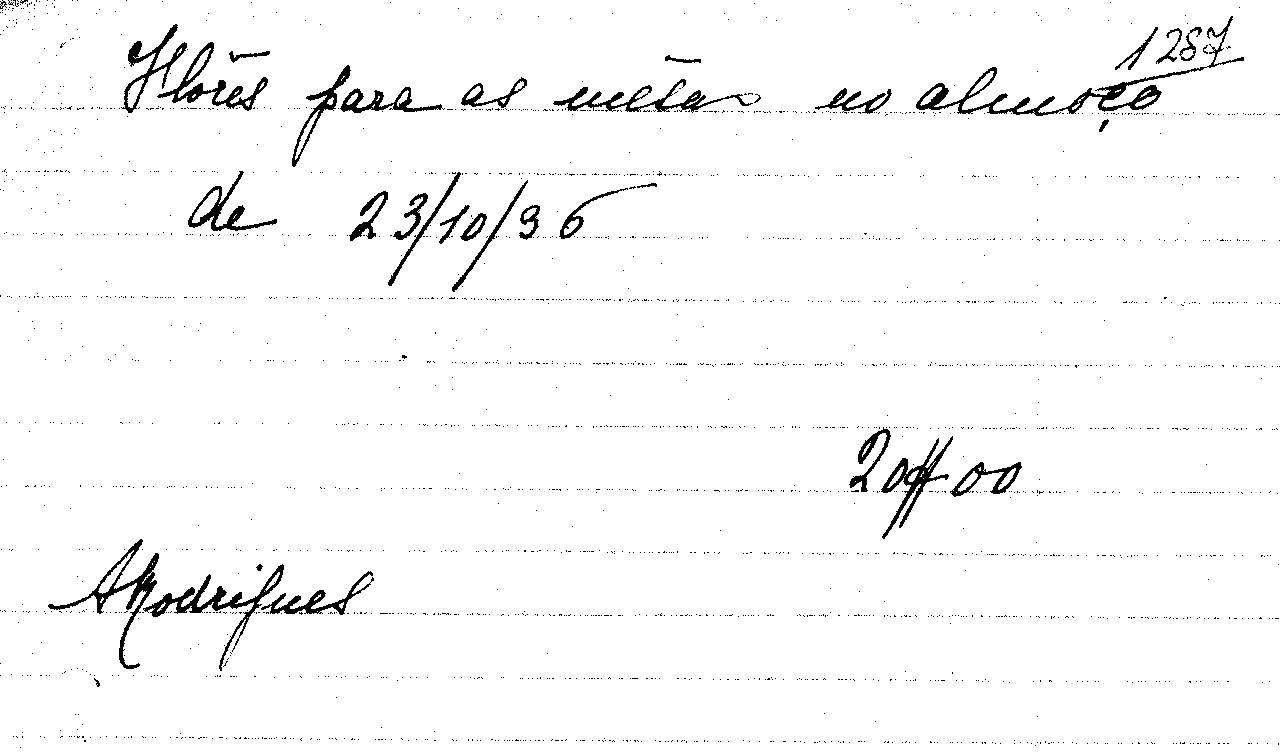 1287
Flôres para as mêsas no almoço
de 23/10/36
20$00
ARodrigues